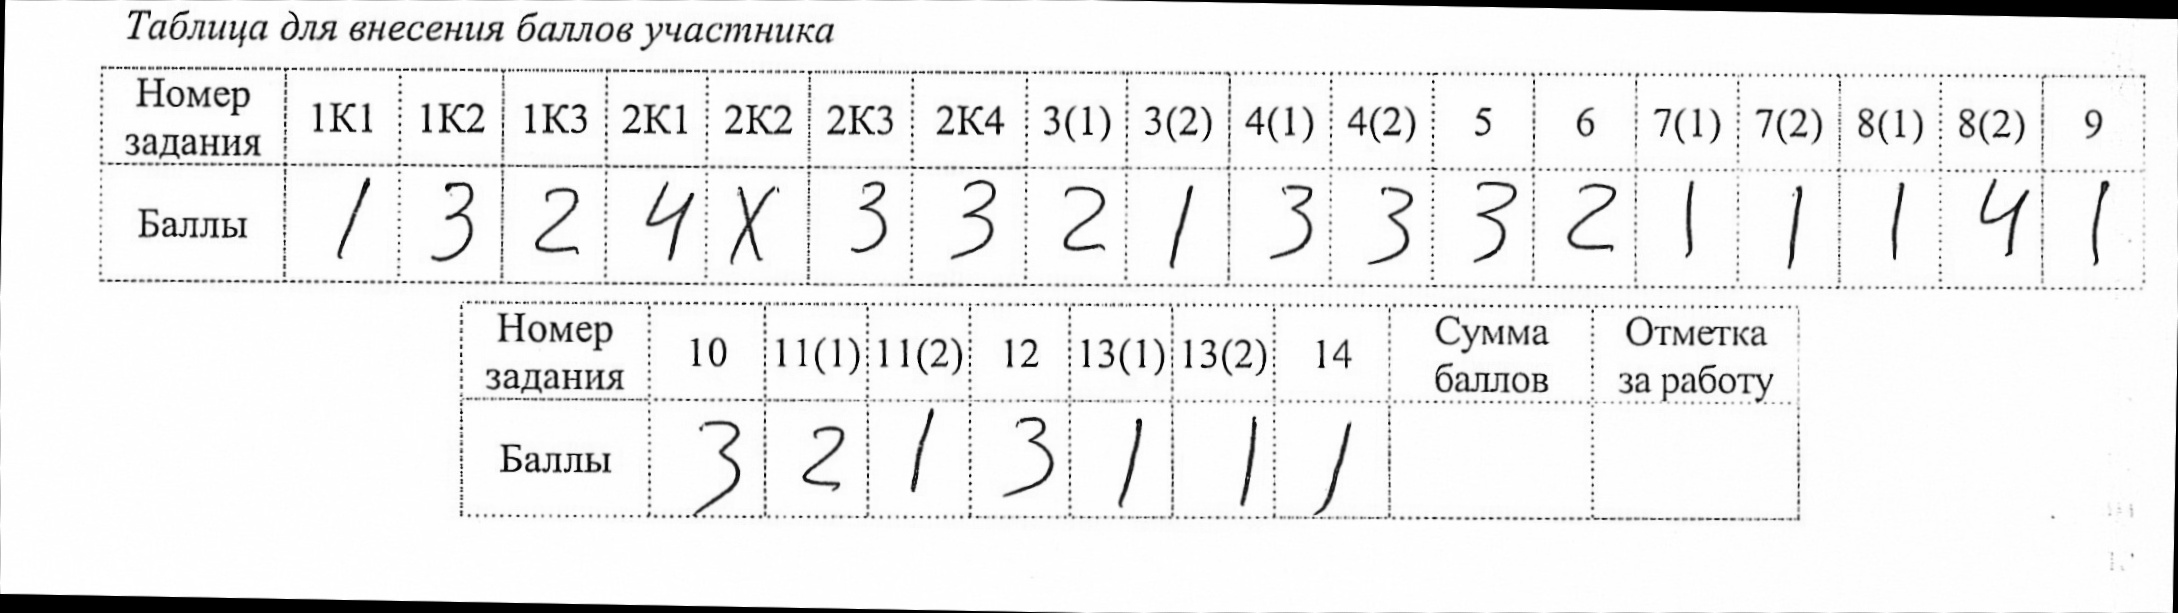 Таблица для внесения баллов участника
Номер задания 1К1 1К2 1К3 2К1 2К2 2К3 2К4 3(1) 3(2) 4(1) 4(2) 5 6 7(1) 7(2) 8(1) 8(2) 9
Баллы 1 3 2 4 X 3 3 2 1 3 3 3 2 1 1 1 4 1
Номер задания 10 11(1) 11(2) 12 13(1) 13(2) 14 Сумма баллов Отметка за работу
Баллы 3 2 1 3 1 1 1